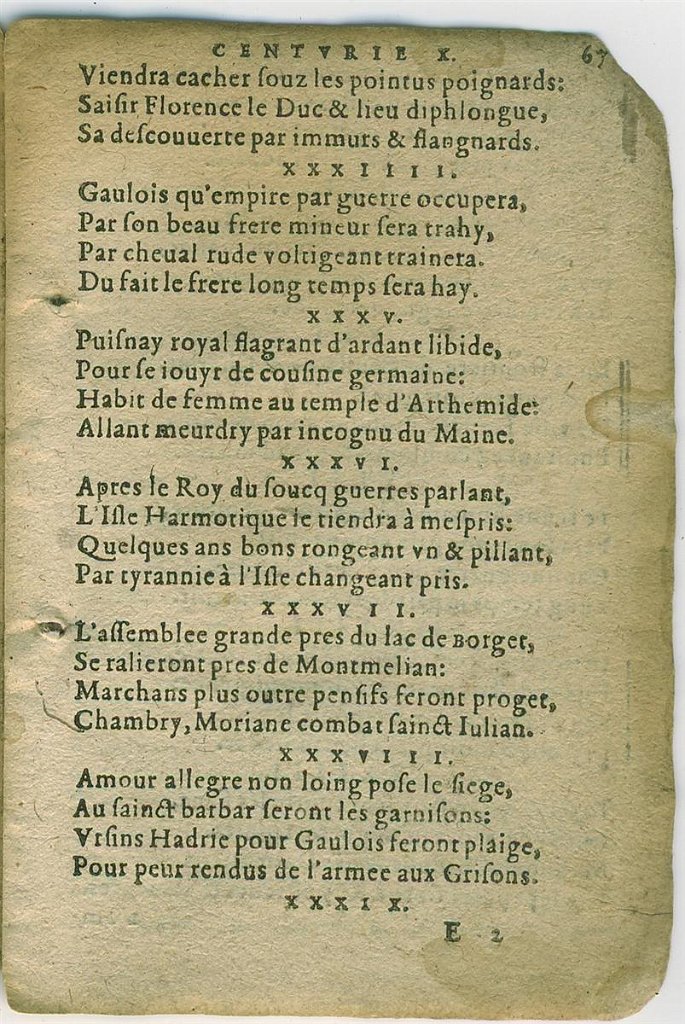 CENTVRIE X. 67
Viendra cacher ſouz les pointus poignards:
Saiſir Florence le Duc & lieu diphlongue,
Sa deſcouuerte par immurs & flangnards.
XXXIIII.
Gaulois qu'empire par guerre occupera,
Par ſon beau frere mineur ſera trahy,
Par cheual rude voltigeant trainera.
Du fait le frere long temps ſera hay.
XXXV.
Puiſnay royal flagrant d'ardant libide,
Pour ſe iouyr de couſine germaine:
Habit de femme au temple d'Arthemide:
Allant meurdry par incognu du Maine.
XXXVI.
Apres le Roy du ſoucq guerres parlant,
L'Iſle Harmotique le tiendra à meſpris:
Quelques ans bons rongeant vn & pillant,
Par tyrannie à l'Iſle changeant pris.
XXXVII.
L'aſſemblee grande pres du lac de Borget,
Se ralieront pres de Montmelian:
Marchans plus outre penſifs feront proget,
Chambry, Moriane combat ſainct Iulian.
XXXVIII.
Amour allegre non loing poſe le ſiege,
Au ſainct barbar ſeront les garniſons:
Vrſins Hadrie pour Gaulois feront plaige,
Pour peur rendus de l'armee aux Griſons.
XXXIX.
E 2